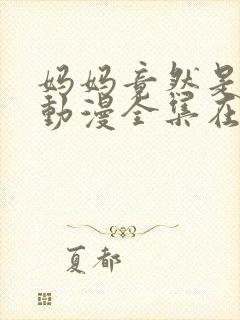 妈妈竟然是
動漫全集在
夏都